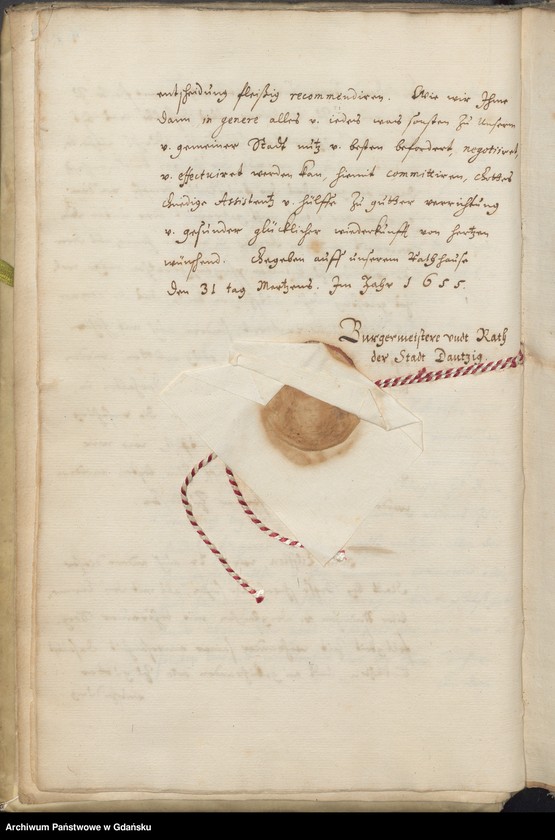 entscheidung fleißig recommendiren. Wie wir Ihme
dann in genere alles v. iedes was sonsten zu Unserm
v. gemeiner Stadt nutz v. besten befordert, negotiiret,
v. effectuiret werden kan, hiemit committiren, Gottes
Gnedige Assistentz v. hülffe zu gutter verrichtung
v. gesunder glücklicher wiederkunfft von hertzen
wünschend. Gegeben auff unserem Rathhause
den 31 tag Martzens. Im Jahr 1655.
Burgermeistere vndt Rath
der Stadt Dantzig.
Archiwum Państwowe w Gdańsku